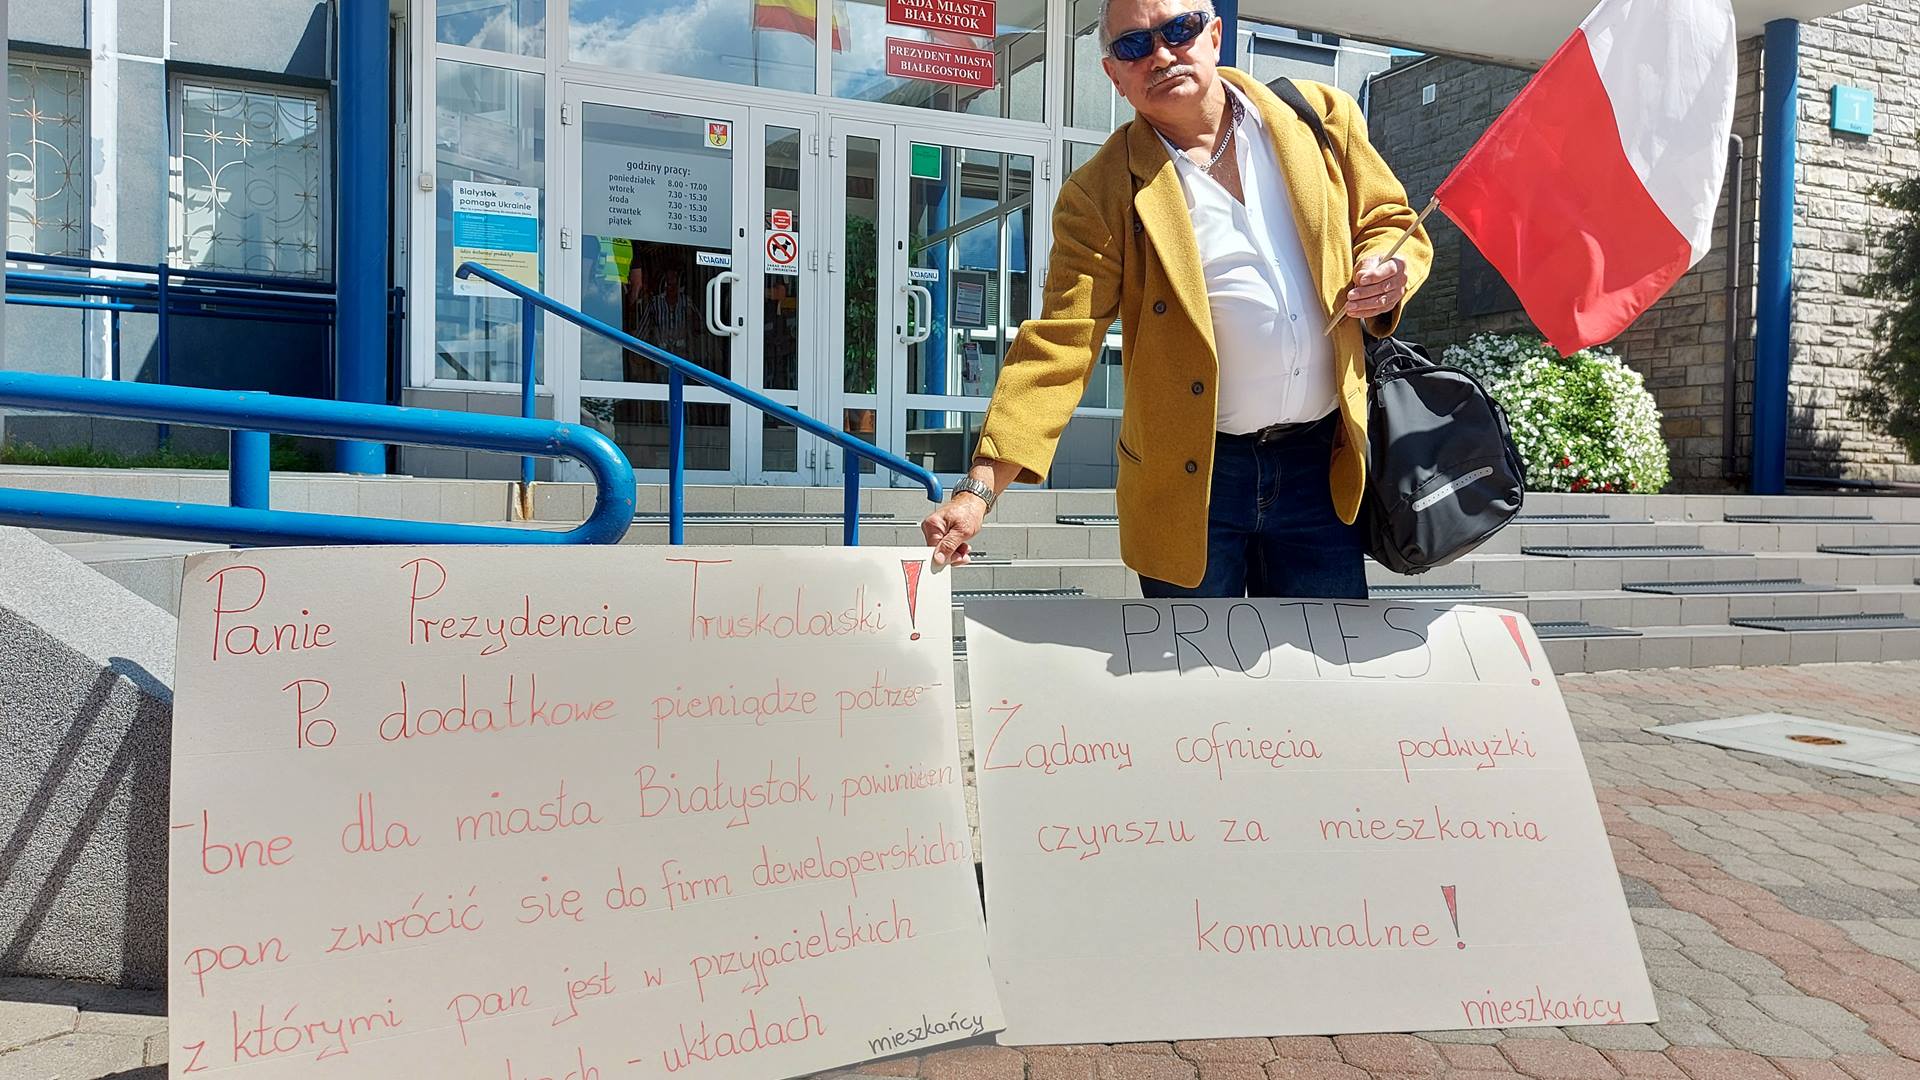 RADA MIASTA
BIAŁYSTOK
PREZYDENT MIASTA
BIAŁEGOSTOKU
godziny pracy:
poniedziałek 8.00 - 17.00
wtorek 7.30 - 15.30
środa 7.30 - 15.30
czwartek 7.30 - 15.30
piątek 7.30 - 15.30
Białystok
pomaga Ukrainie
1
Panie Prezydencie Truskolaski!
Po dodatkowe pieniądze potrze-
-bne dla miasta Białystok, powinien
pan zwrócić się do firm deweloperskich,
z którymi pan jest w przyjacielskich
- układach
mieszkańcy
PROTEST!
Żądamy cofnięcia podwyżki
czynszu za mieszkania
komunalne!
mieszkańcy